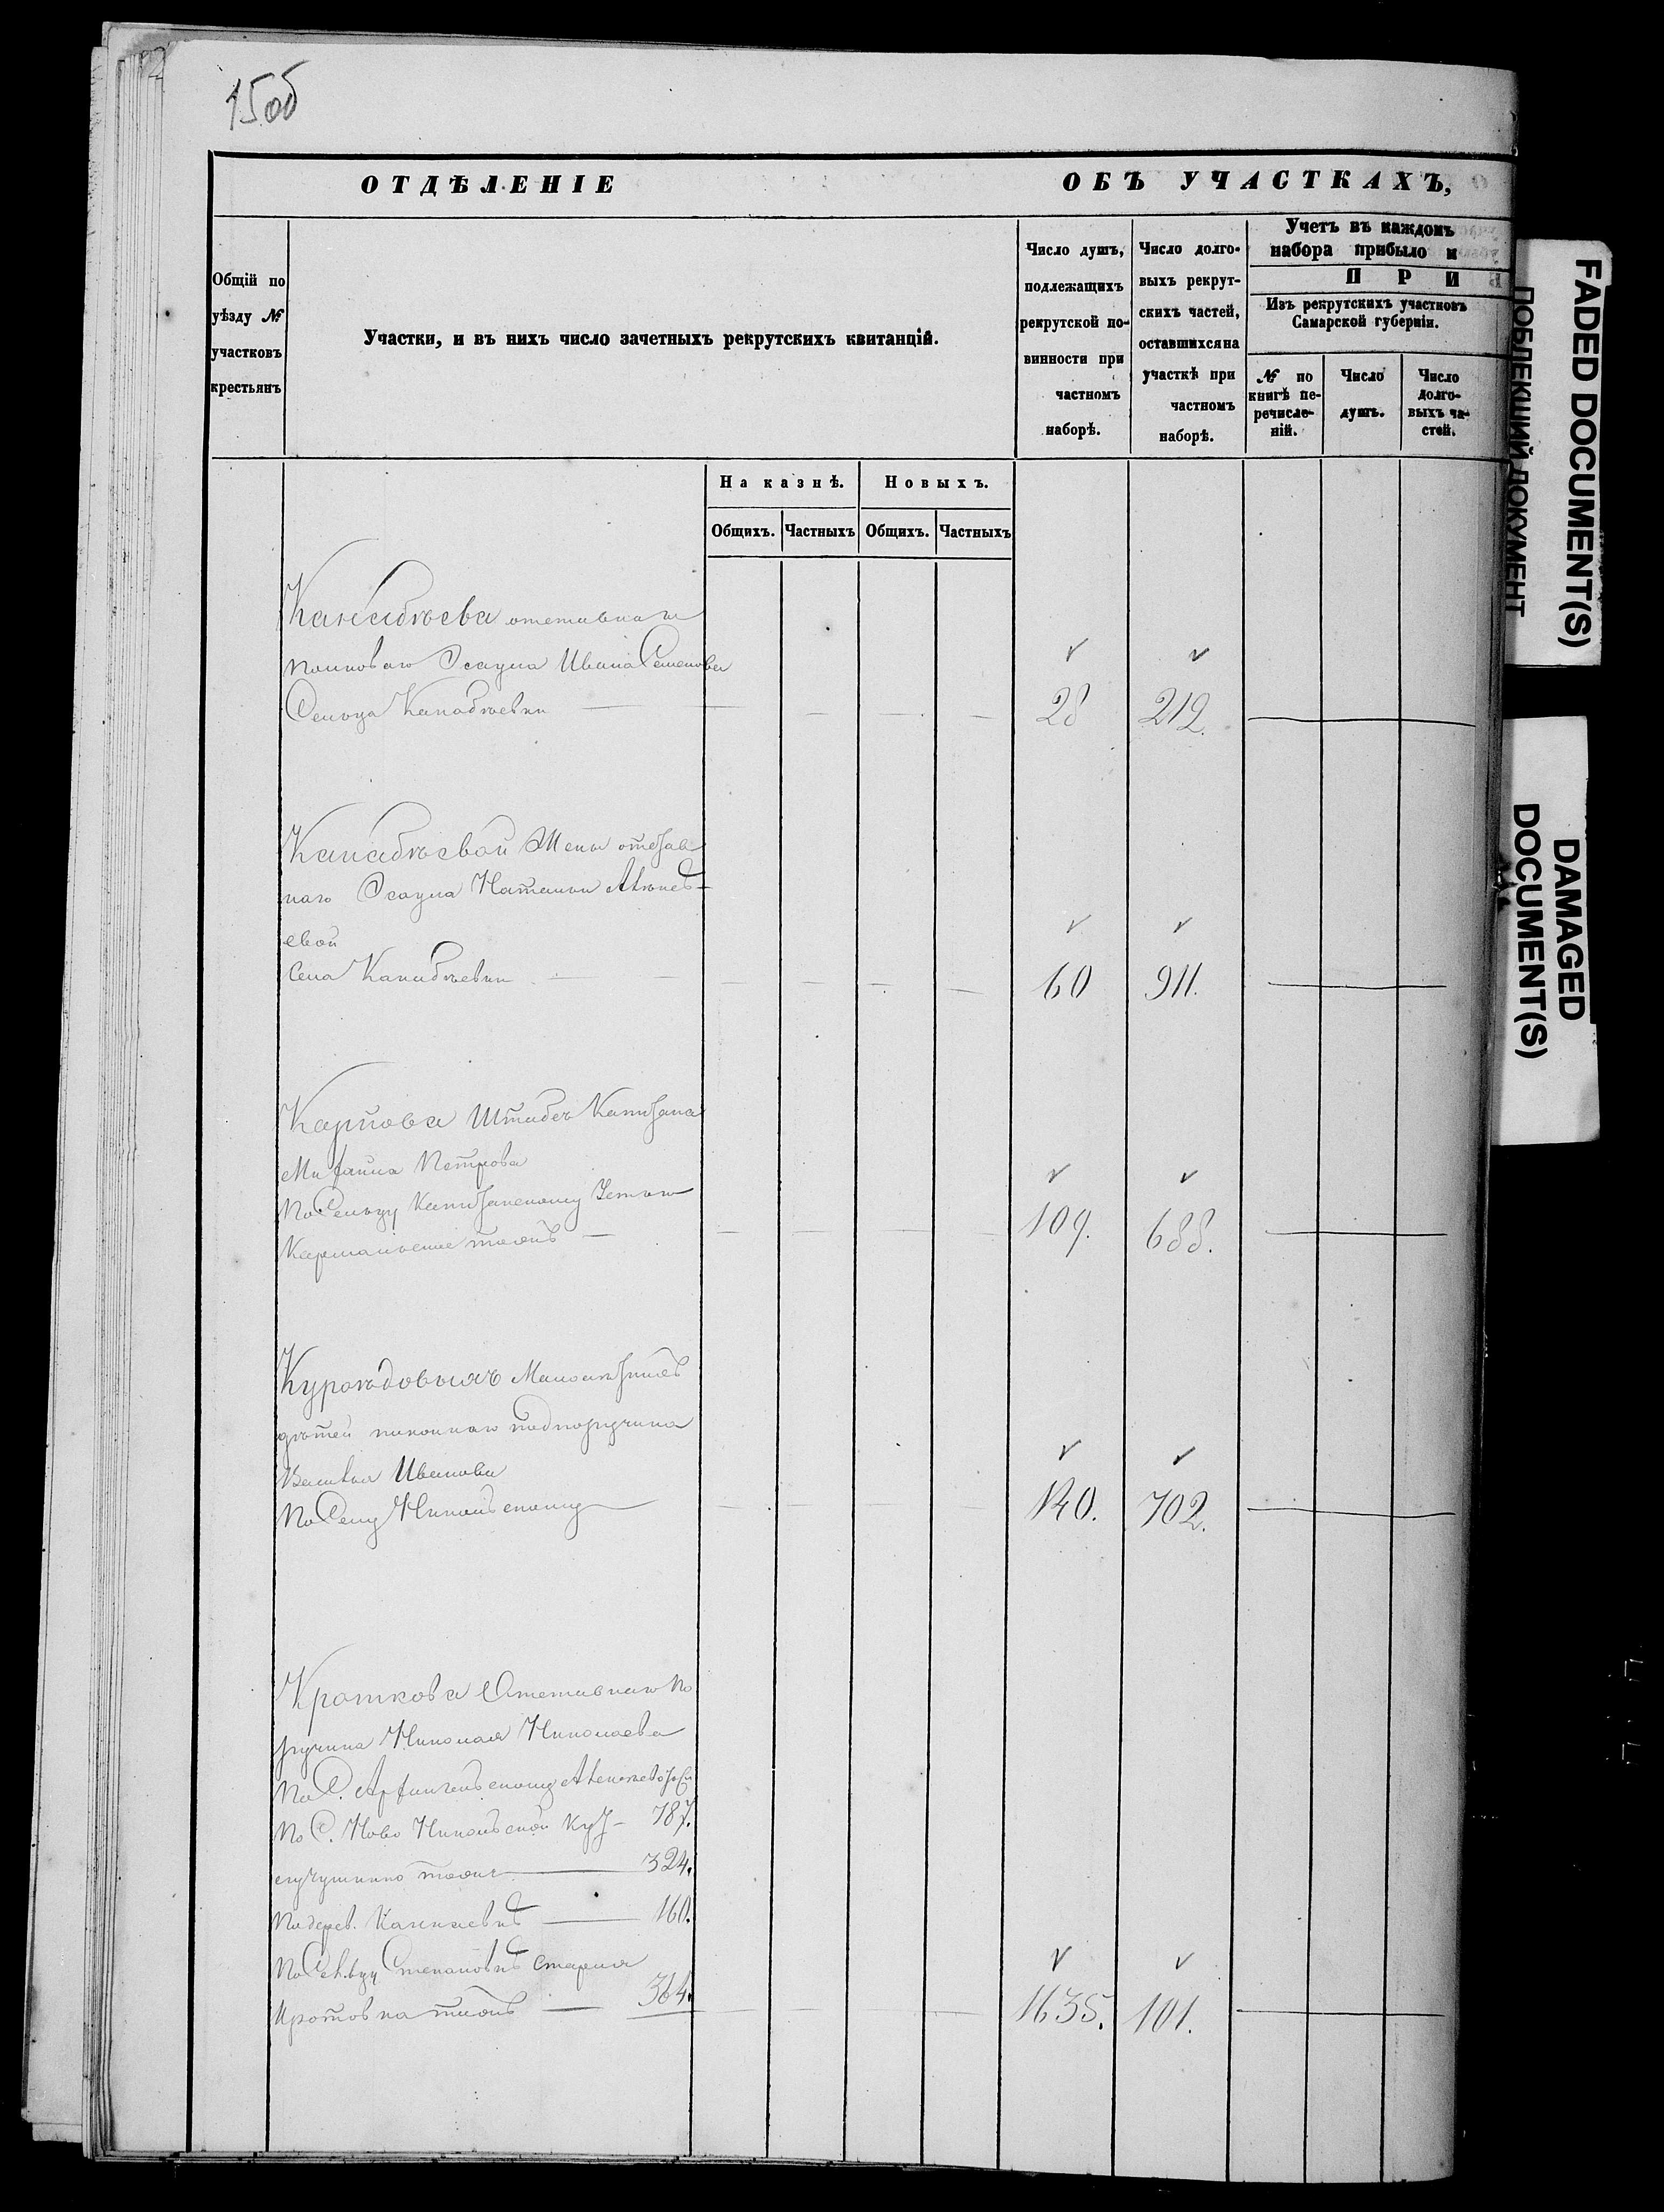 15об
ОТДѢЛЕНІЕ ОБЪ УЧАСТКАХЪ,
Общій по уѣзду № участковъ крестьянъ
Участки, и въ нихъ число зачетныхъ рекрутскихъ квитанцій.
Число душъ, подлежащихъ рекрутской по-винности при частномъ наборѣ.
Число долго-выхъ рекрут-скихъ частей, оставшихся на участкѣ при частномъ наборѣ.
Учетъ въ каждомъ
набора прибыло и
ПРИ
Изъ рекрутскихъ участковъ
Самарской губерніи.
№ по книгѣ пе-речисле-ній.
Число душъ.
Число долго-выхъ ча-стей.
На казнѣ. Новыхъ.
Общихъ. Частныхъ Общихъ. Частныхъ
Канабѣева отставнаго
полковаго Эсаула Ивана Семенова
Сельца Канабѣевки — 28 212.
Канабѣевой Жены отстав
наго Эсаула Натальи
евой
Села Канабѣевки — 60 911.
Карпова Штабсъ Капитана
Михаила Петрова
По Сельцу Капитанскому
тожъ — 109. 688.
Куроѣдовыхъ Малолѣтнихъ
дѣтей покойнаго подпоручика
Василья Иванова
По Селу Никольскому — 140. 702.
Кроткова Отставнаго По
ручика Николая Николаева
По С. Архангельскому
По С. Ново Никольской 787.
тожъ — 324.
По дерев. — 160.
По Сельцу Степановкѣ Старая
Кротовка тожъ — 364. 1635. 101.
FADED DOCUMENT(S)
ПОБЛЕКШИЙ ДОКУМЕНТ
DAMAGED
DOCUMENT(S)